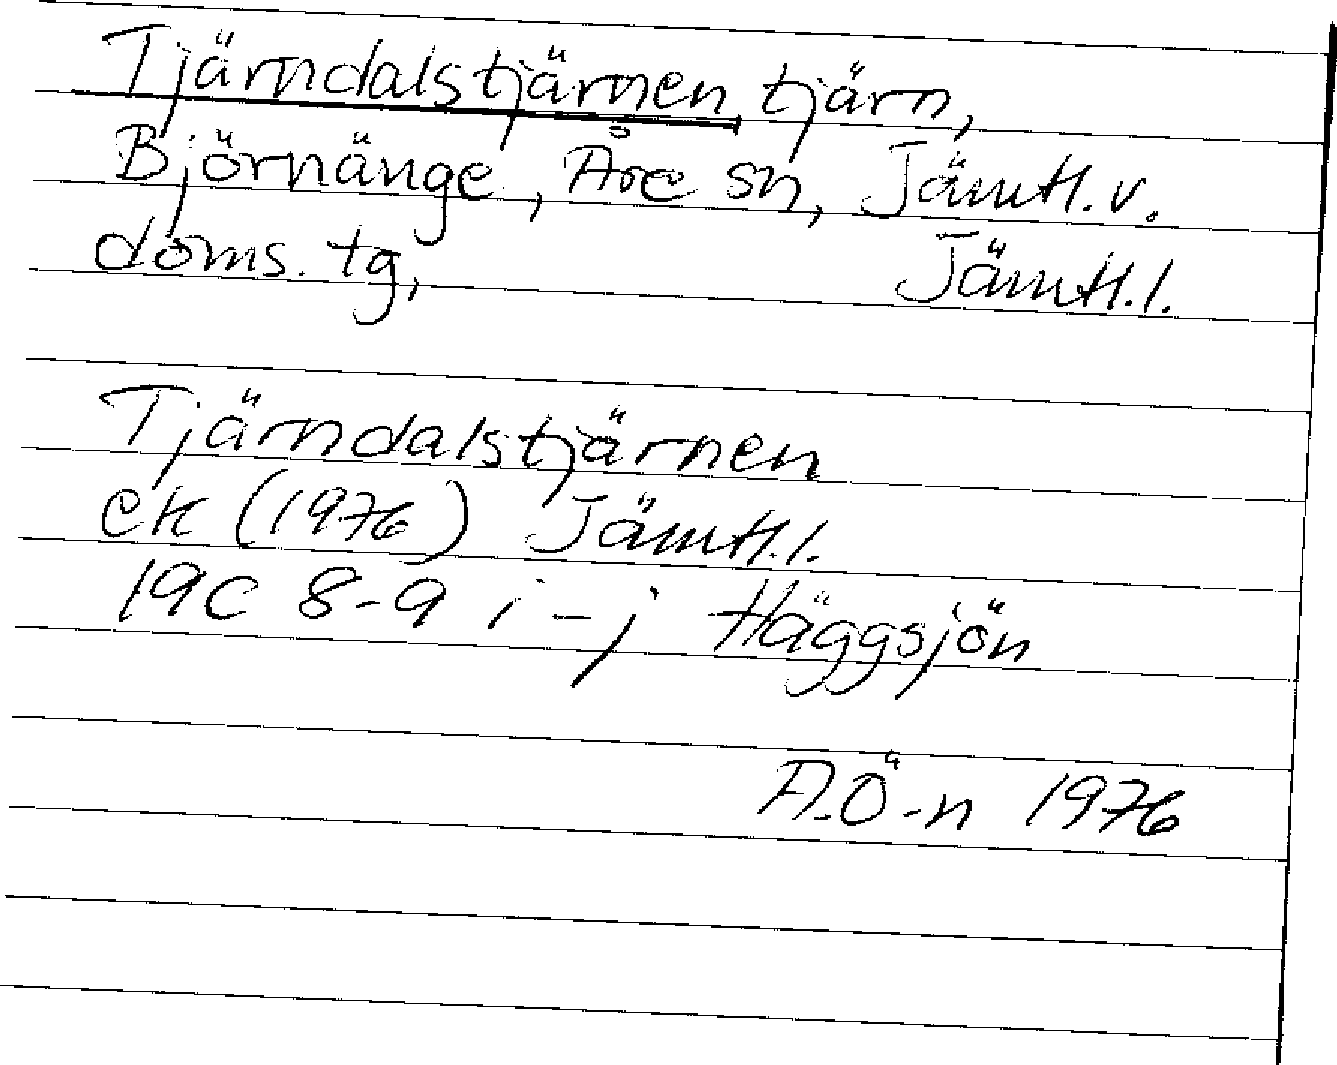 Tjärndalstjärnen, tjärn,
Björnänge, Åre sn, Jämtl. v.
doms. tg, Jämtl. l.
Tjärndalstjärnen
ek (1976) Jämtl. l.
19C 8-9 i-j Häggsjön
A.Ö-n 1976